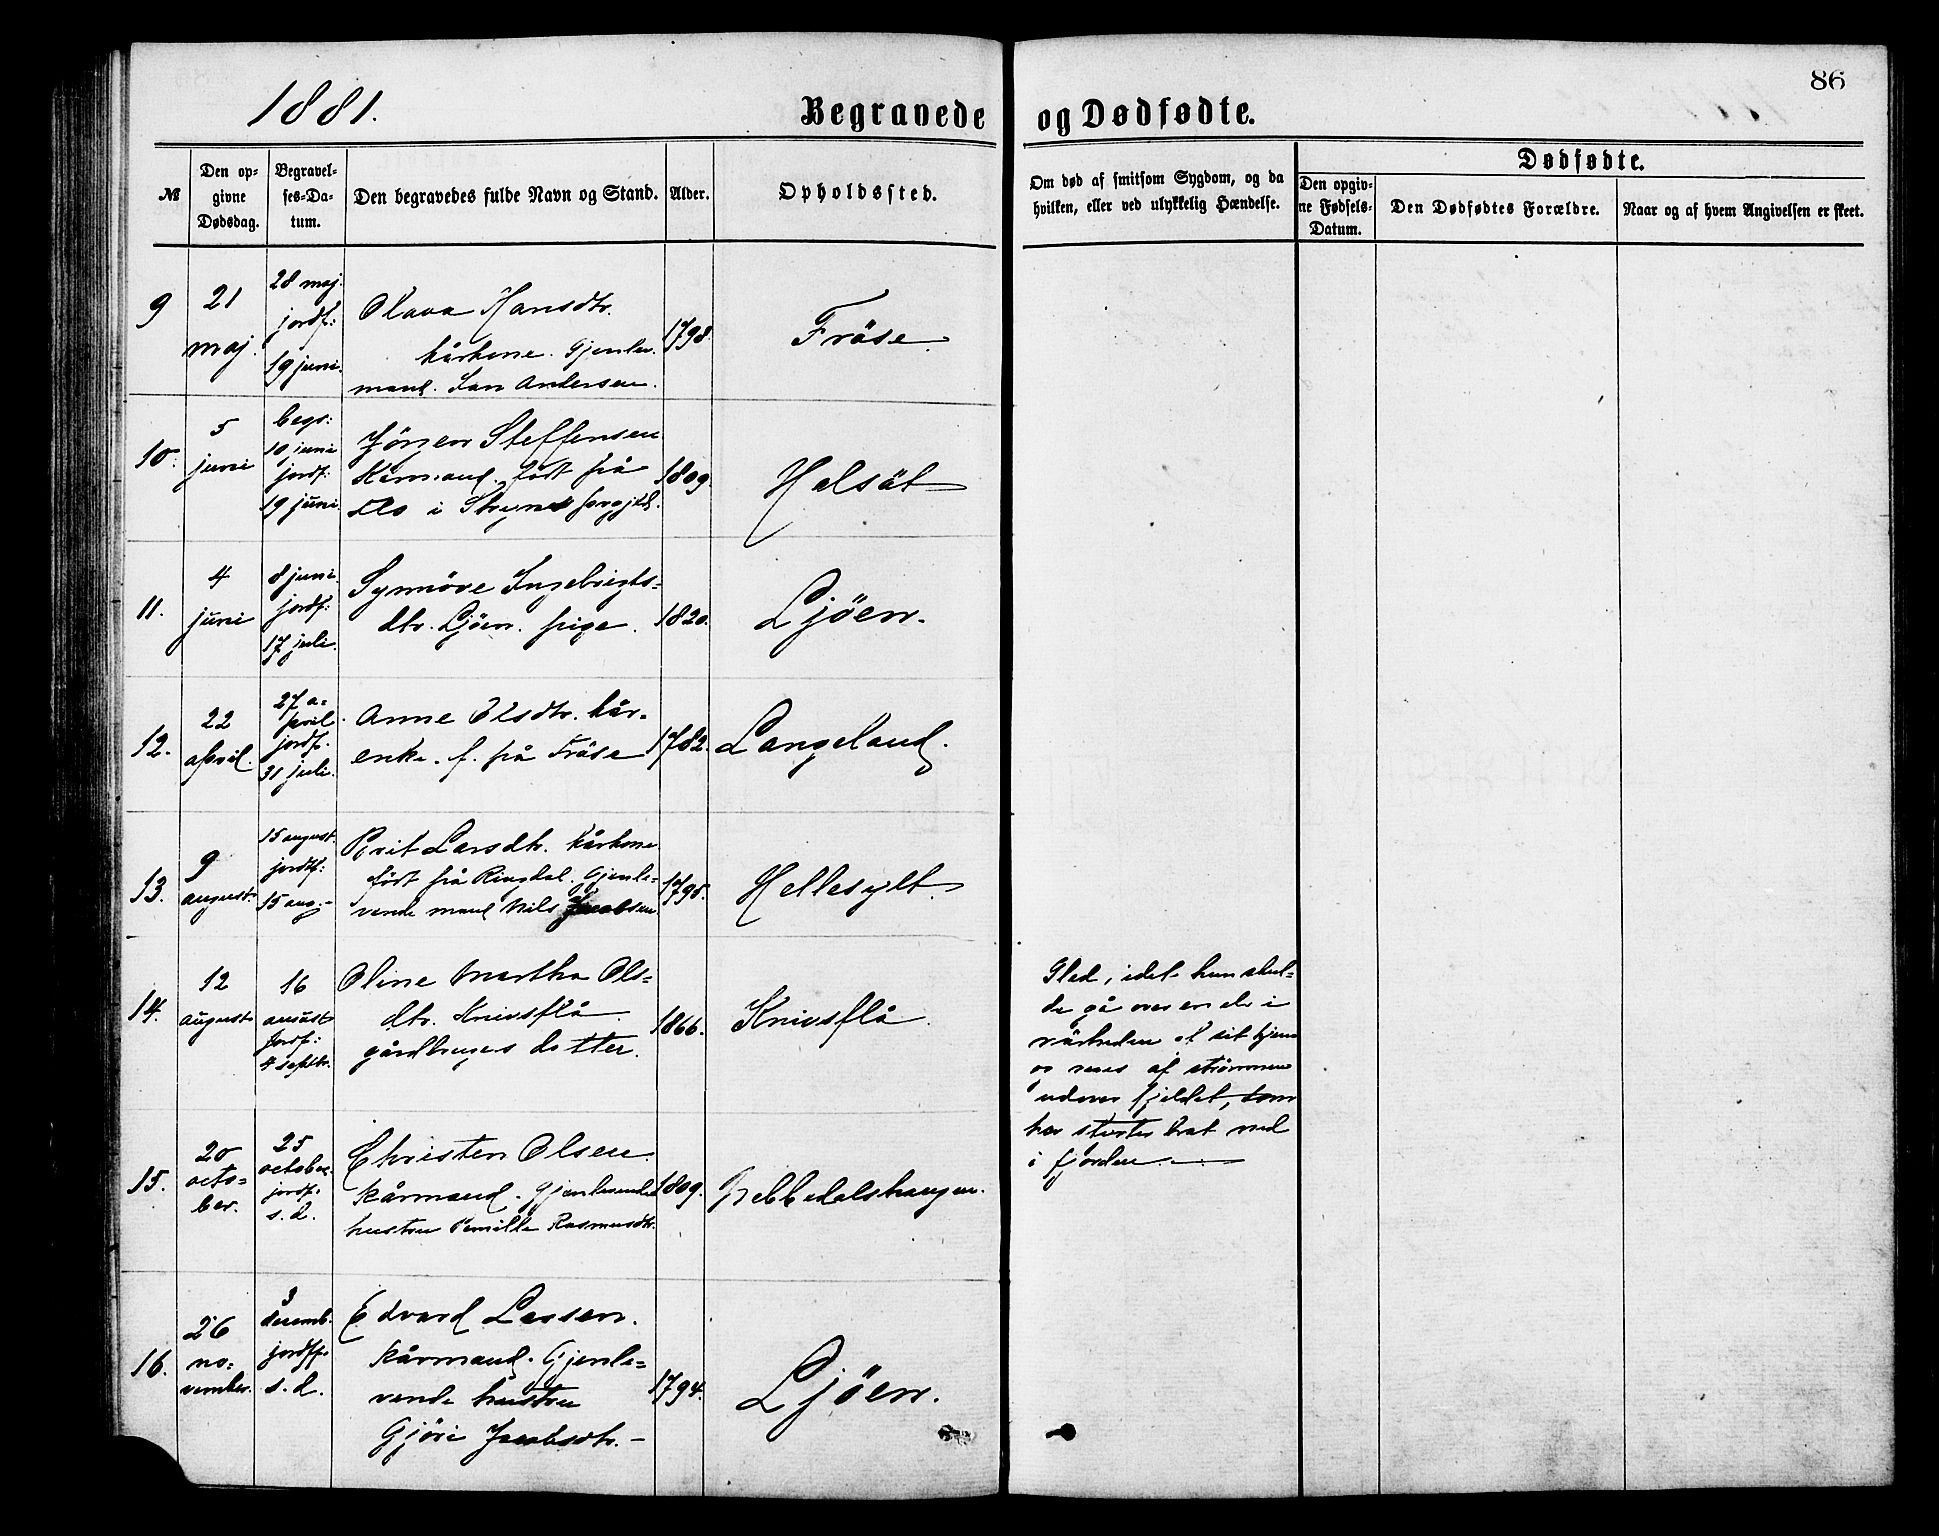 1881.
Begravede og Dødfødte.
86
№
Den op-
givne
Dødsdag.
Begravel-
ses-Da-
tum.
Den begravedes fulde Navn og Stand.
Alder.
Opholdssted.
Om død af smitsom Sygdom, og da
hvilken, eller ved ulykkelig Hændelse.
Dødfødte.
Den opgiv-
ne Fødsels-
Datum.
Den Dødfødtes Forældre.
Naar og af hvem Angivelsen er skeet.
9
21
maj.
28 maj.
jordf:
19 juni.
Olava Hansdtr.
kårkone. Gjenlev.
mand. Jan Andersen.
1798
Fröse
10.
5
juni
begr:
10 juni
jordf:
19 juni.
Jörgen Steffensen
Kårmand. födt på
Flo i Stryns prgjld.
1809.
Helsät
11.
4
juni
8 juni.
jordf:
17 juli.
Synnöve Ingebrigts-
dtr. Ljöen. pige.
1820.
Ljöen.
12.
22
april.
27 a-
pril
jordf.
31 juli.
Anne Elsdtr. kår-
enke. f. på Fröse
1782.
Langeland.
13.
9
august.
15 august.
jordf:
15 aug.-
Brit Larsdtr. Kårkone
födt på Ringdal. Gjenle-
vende mand Nils Jacobsen
1795.
Hellesylt
14.
12
august
16
august
Jordf:
4 septbr.
Oline Martha Ols-
dtr. Knivsflå
gårdbruges datter.
1866.
Knivsflå.
Gled, idet hun skul-
de gå over en elv i
närheden af sit hjem
og reves af strömmen
udover fjeldet, som
her styrter brat ned
i fjorden.
15.
20
octo-
ber.
25
october
jordf.
s. d.
Christen Olsen.
Kårmand. Gjenlevende
hustru Pernille Rasmusdtr.
1809.
Nebbedalshaugen.
16.
26
no-
vember.
3
decemb.
jordf.
s. d.
Edvard Larsen.
Kårmand. Gjenle-
vende hustru
Gjöri Jacobsdtr. -
1794.
Ljöen.